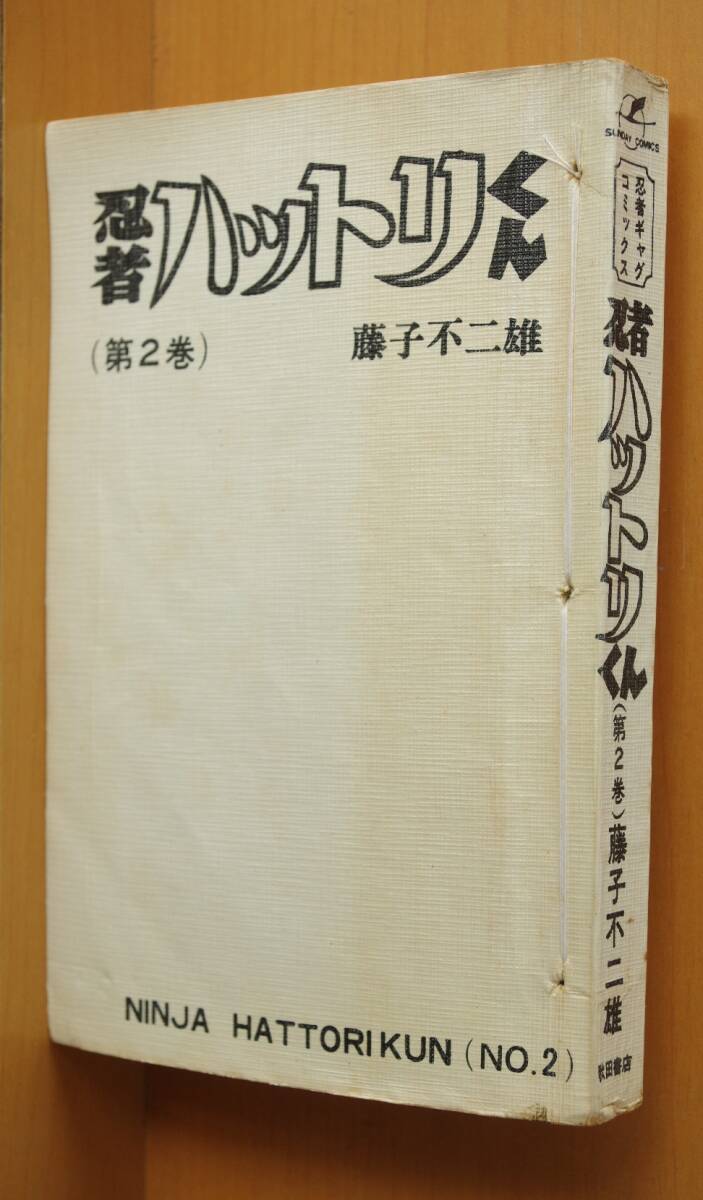 忍者ハットリくん
(第2巻)
藤子不二雄
NINJA HATTORIKUN (NO.2)
SUNDAY COMICS
忍者ギャグ
コミックス
忍者ハットリくん
(第2巻)
藤子不二雄
秋田書店